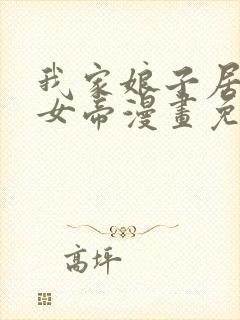 我家娘子居
女帝漫畫免
高坪